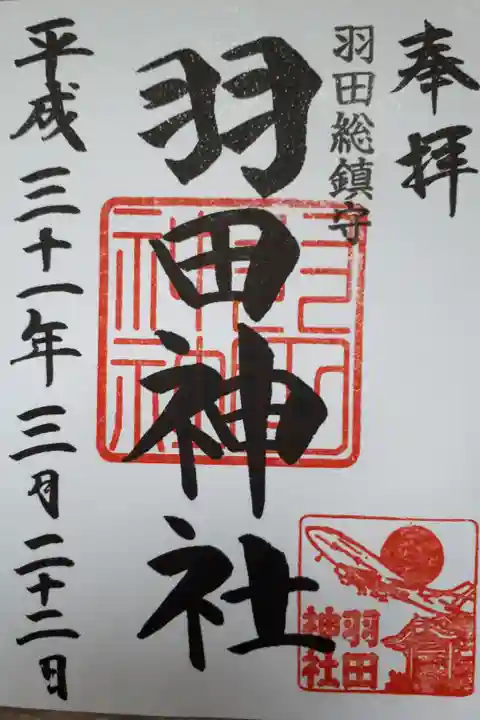 奉拝
羽田総鎮守
羽田神社
羽田
神社
平成三十一年三月二十二日
羽田
神社